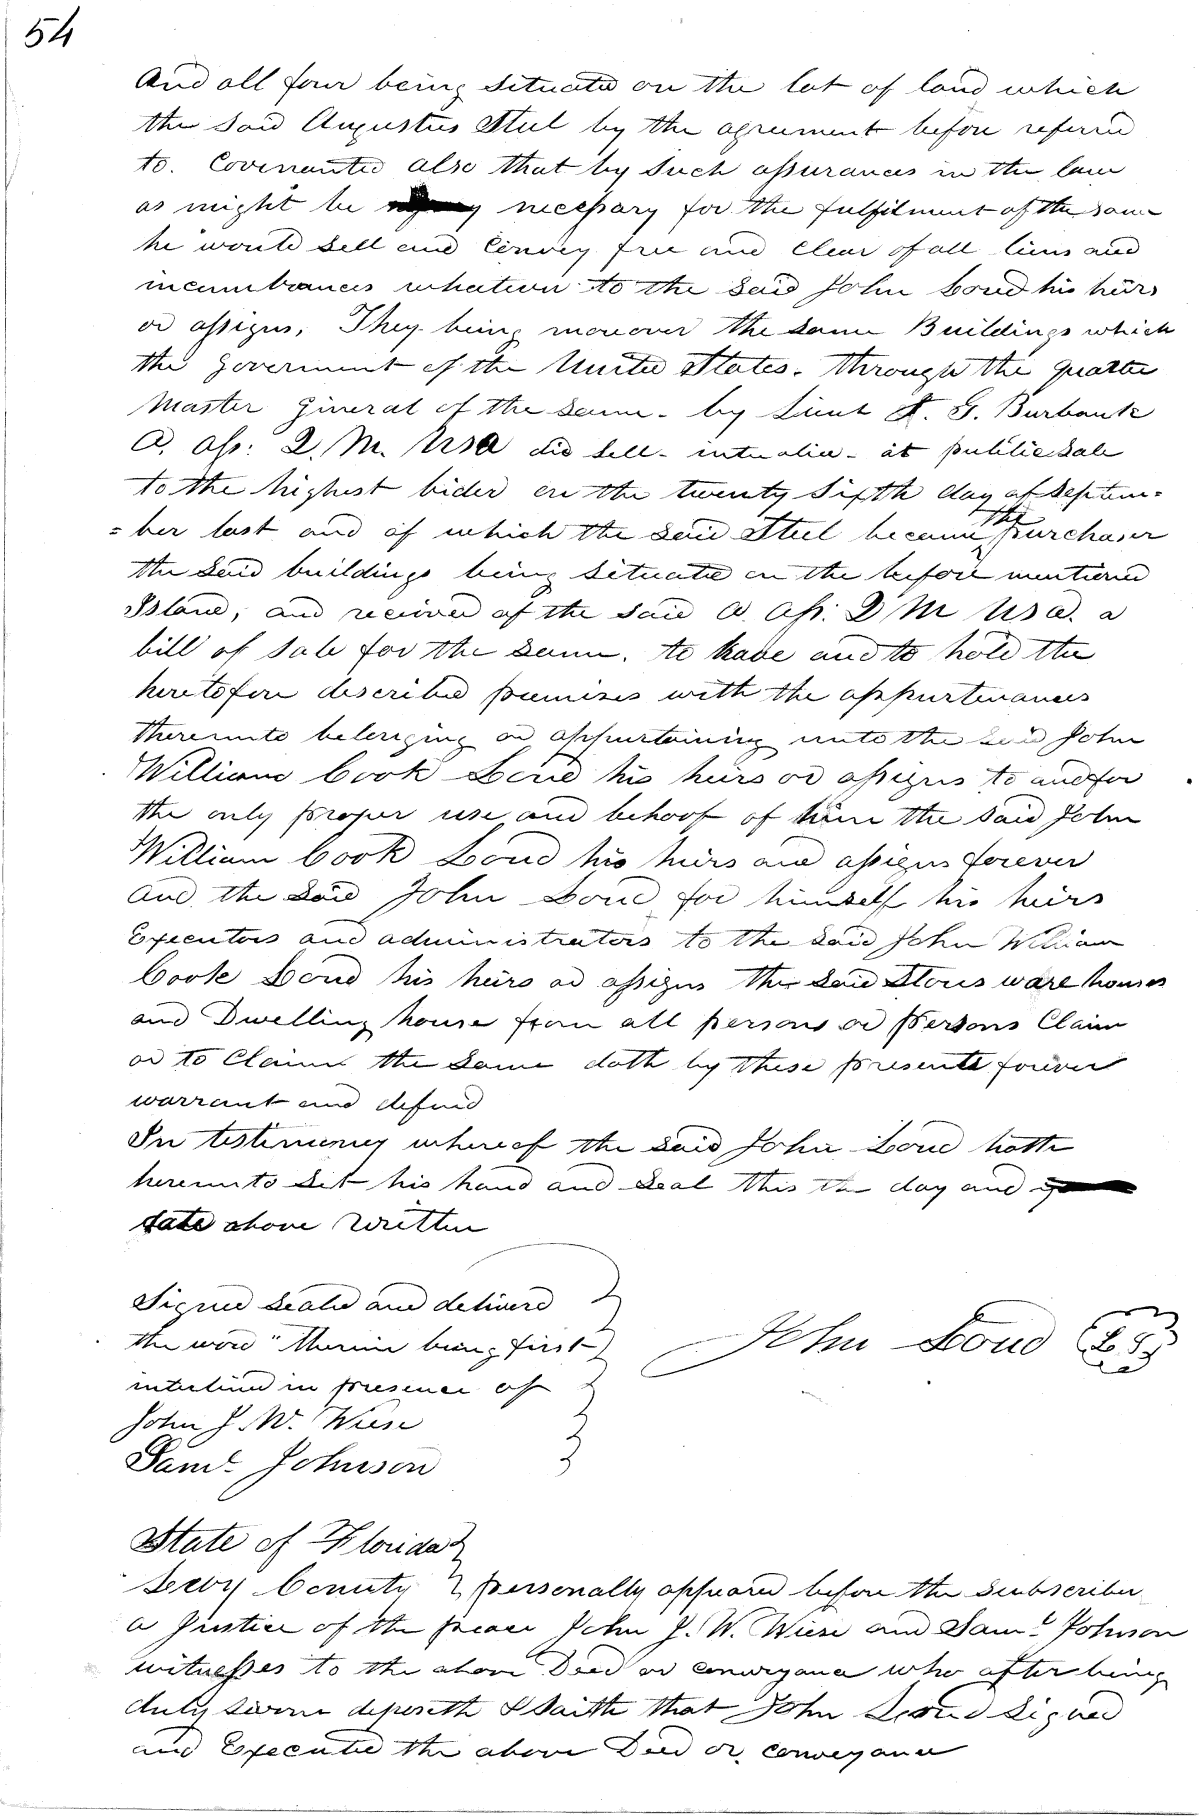 54
And all four being situate on the lot of land which
the said Augustus Steel by the agreement before referred
to. Covenanted also that by such assurances in the law
as might be necessary for the fulfilment of the same
he would sell and Convey free and Clear of all liens and
incumbrances whatever to the said John Loud his heirs
or assigns, They being moreover the same Buildings which
the Goverment of the United States. through the quarter
Master General of the same - by Lieut S. G. Burbank
A. Ass: Q. M. USA did sell - inter alia - at public sale
to the highest bider on the twenty sixth day of Septem=
=ber last and of which the said Steel became the purchaser
the said buildings being situate on the before mentioned
Island, and received of the said A. Ass: Q M USA. a
bill of sale for the same. to have and to hold the
heretofore described premises with the appurtenances
thereunto belonging or appurtaining unto the said John
William Cook Loud his heirs or assigns to and for
the only proper use and behoof of him the said John
William Cook Loud his heirs and assigns forever
And the said John Loud for himself his heirs
Executors and administrators to the said John William
Cook Loud his heirs or assigns the said Stores ware houses
and Dwelling house from all persons or persons Claim
or to Claim the same doth by these presents forever
warrant and defend
In testimony whereof the said John Loud hath
hereunto set his hand and seal this the day and
date above written
Signed sealed and deliverd
the word "therein being first
interlined in presence of
John J. W. Wiese
Saml. Johnson
John Loud LS
State of Florida
Levy County personally appeared before the subscriber
a Justice of the peace John J. W. Wiese and Saml. Johnson
witnesses to the above Deed or conveyance who after being
duly sworn deposeth & saith that John Loud signed
and Executed the above Deed or conveyance